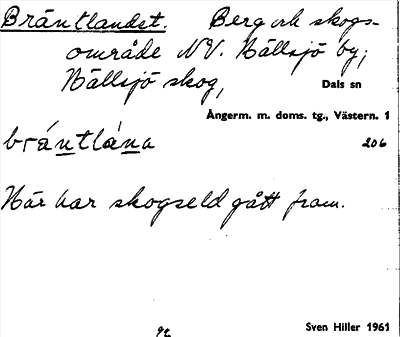 Bräntlandet. Berg och skogs-
område NV. Hällsjö by;
Hällsjö skog, Dals sn
Ångerm. m. doms. tg., Västern. 1
brántlána 206
Här har skogseld gått fram.
Sven Hiller 1961